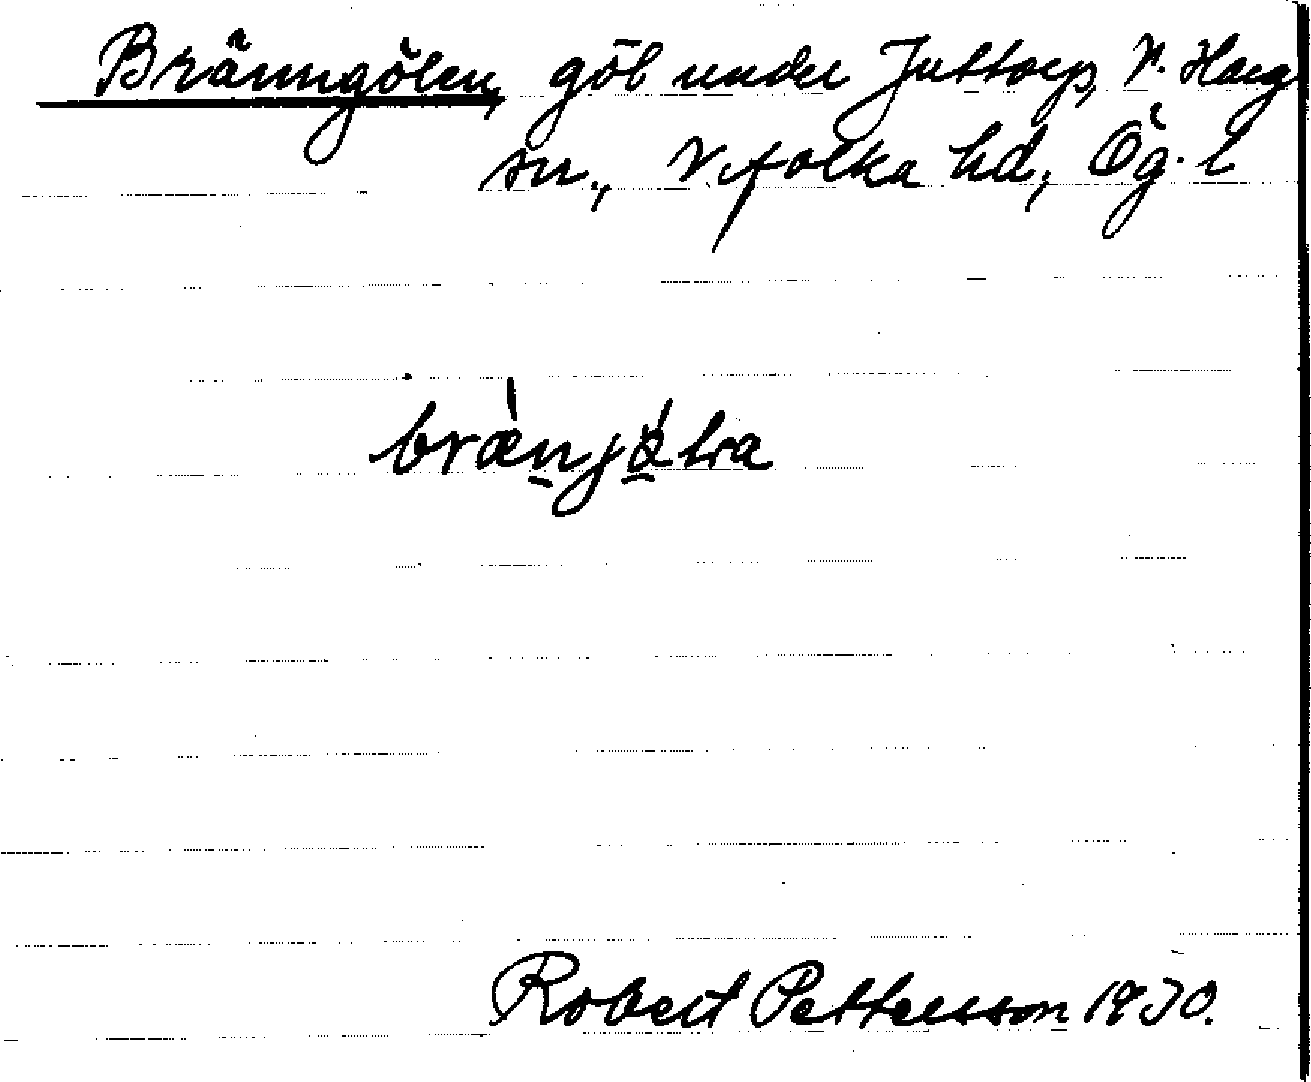 Bränngölen, göl under Juttorp, V. Harg
sn., Vifolka hd, Ög. l
Robert Pettersson 1930.